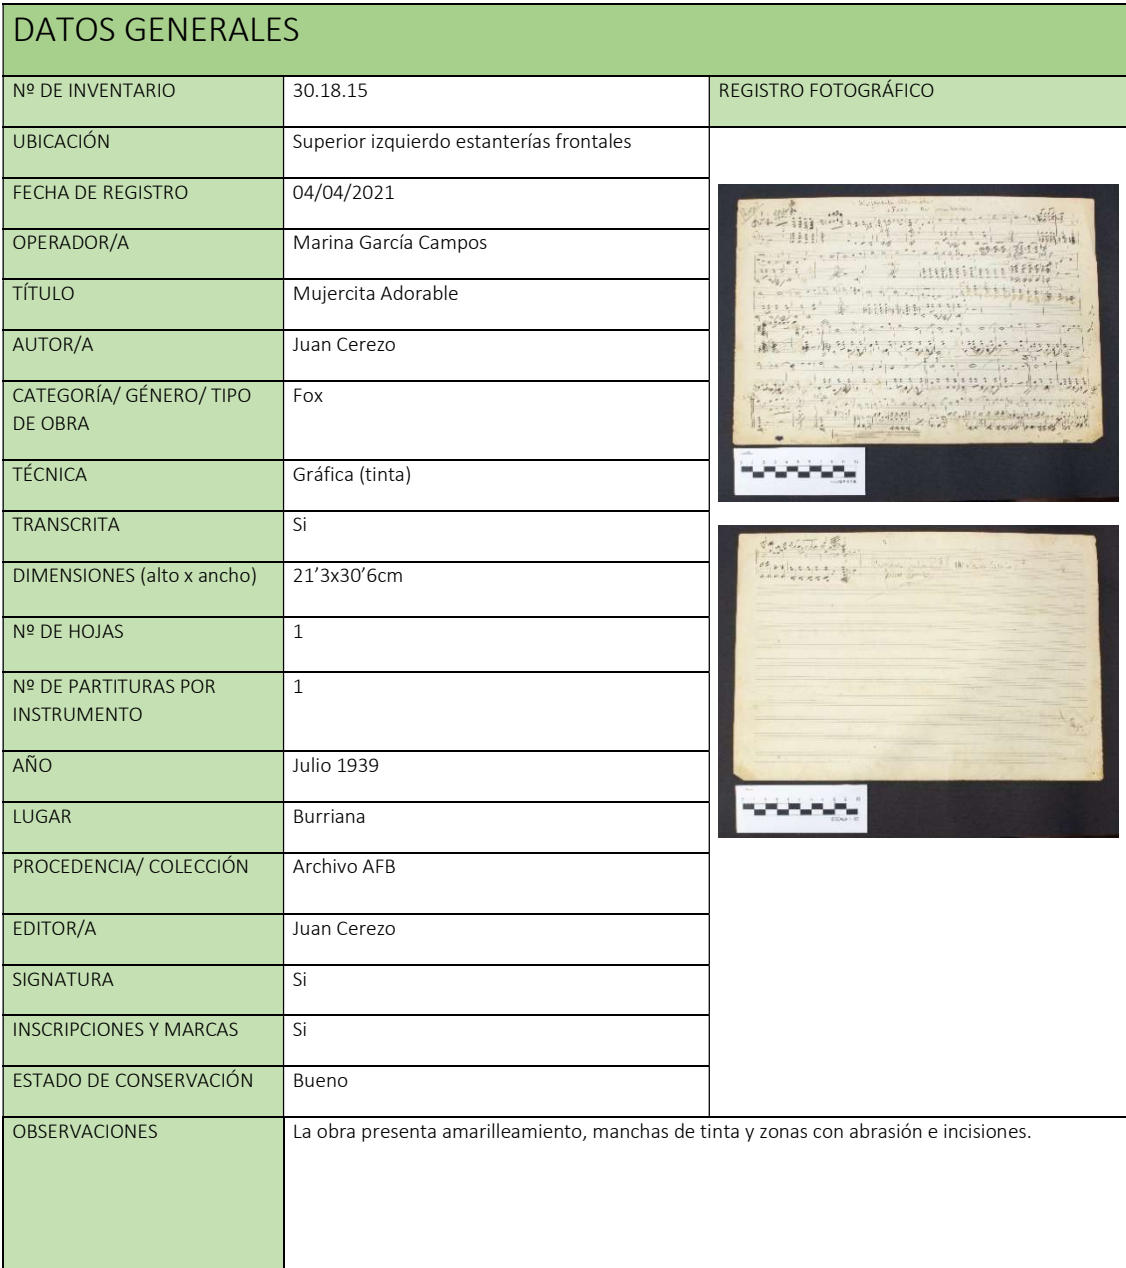 DATOS GENERALES
Nº DE INVENTARIO
30.18.15
REGISTRO FOTOGRÁFICO
UBICACIÓN
Superior izquierdo estanterías frontales
FECHA DE REGISTRO
04/04/2021
OPERADOR/A
Marina García Campos
TÍTULO
Mujercita Adorable
AUTOR/A
Juan Cerezo
CATEGORÍA/ GÉNERO/ TIPO
DE OBRA
Fox
TÉCNICA
Gráfica (tinta)
TRANSCRITA
Si
DIMENSIONES (alto x ancho)
21’3x30’6cm
Nº DE HOJAS
1
Nº DE PARTITURAS POR
INSTRUMENTO
1
AÑO
Julio 1939
LUGAR
Burriana
PROCEDENCIA/ COLECCIÓN
Archivo AFB
EDITOR/A
Juan Cerezo
SIGNATURA
Si
INSCRIPCIONES Y MARCAS
Si
ESTADO DE CONSERVACIÓN
Bueno
OBSERVACIONES
La obra presenta amarilleamiento, manchas de tinta y zonas con abrasión e incisiones.